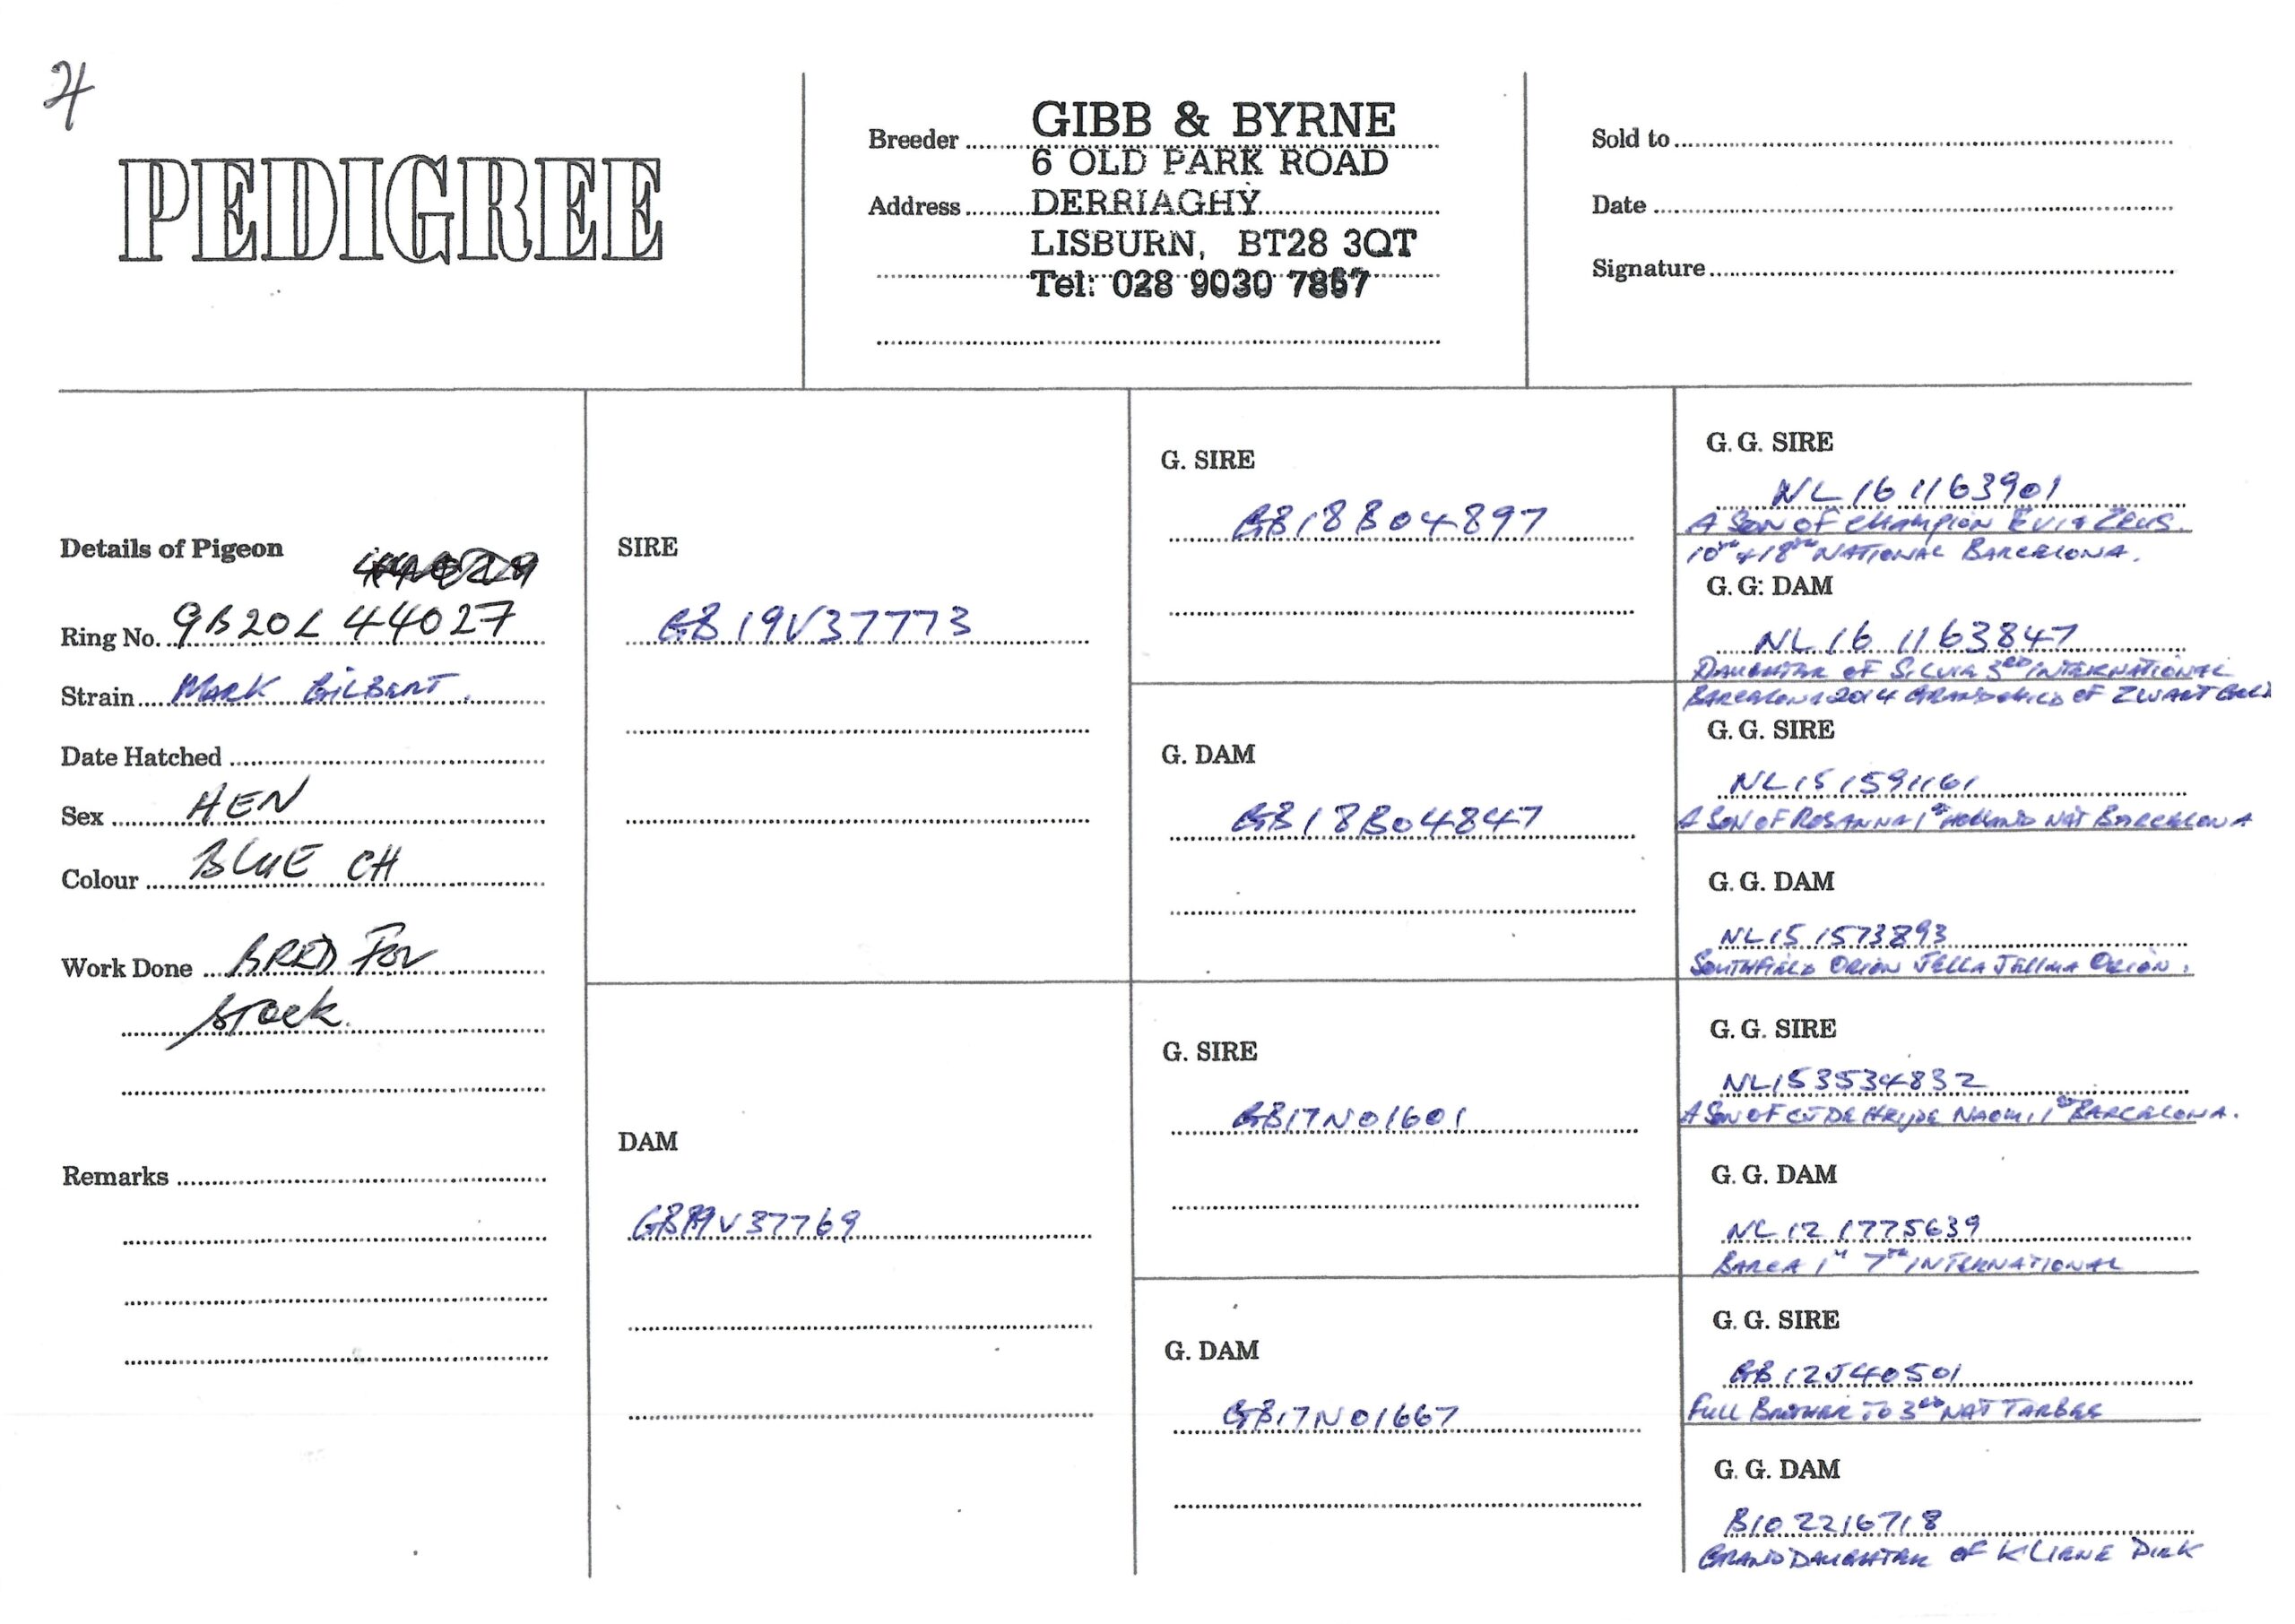 24
PEDIGREE
Breeder
GIBB & BYRNE
6 OLD PARK ROAD
Address
DERRIAGHY
LISBURN, BT28 3QT
Tel: 028 9030 7857
Sold to
Date
Signature
Details of Pigeon
Ring No. GB20L 44027
Strain MARK GILBERT.
Date Hatched
Sex HEN
Colour BLUE CH
Work Done BRED FOR
STOCK.
Remarks
SIRE
GB19V37773
DAM
GB19V37769
G. SIRE
GB18B04897
G. DAM
GB18B04847
G. SIRE
GB17N01601
G. DAM
GB17N01667
G. G. SIRE
NL16 1163901
A SON OF CHAMPION EVI & ZEUS.
10TH & 18TH NATIONAL BARCELONA.
G. G. DAM
NL16 1163847
DAUGHTER OF SILVIA 3RD INTERNATIONAL
BARCELONA 2014 GRANDCHILD OF ZWART
G. G. SIRE
NL15 1591161
A SON OF ROSANNA 1ST HOLLAND NAT BARCELONA
G. G. DAM
NL15 1573893
SOUTHFIELD ORION JELLA JELLMA ORION.
G. G. SIRE
NL15 3534832
A SON OF CJ DE HEIJDE NAOMI 1ST BARCELONA.
G. G. DAM
NL12 1775639
BARCA 1ST 7TH INTERNATIONAL
G. G. SIRE
GB12J40501
FULL BROTHER TO 3RD NAT TARBES
G. G. DAM
B10 2216718
GRANDDAUGHTER OF KLIENE DIRK